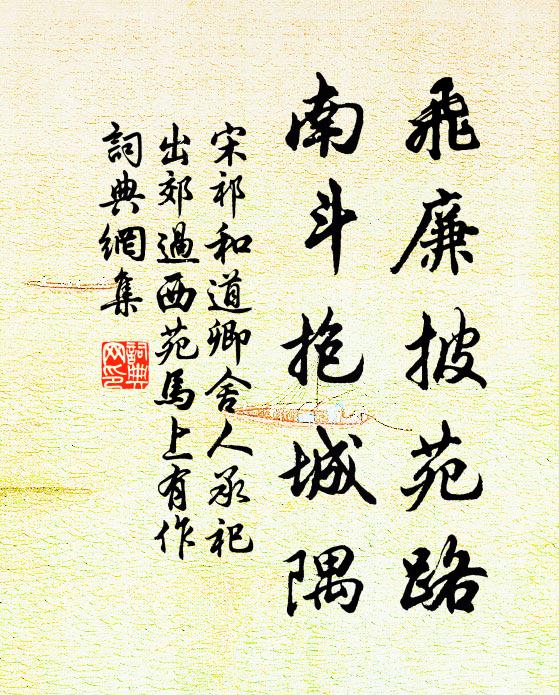 飛廉披苑路
南斗抱城隅
宋祁和道卿舍人承祀
出郊過西苑馬上有作
詞典網集
詞典
网印